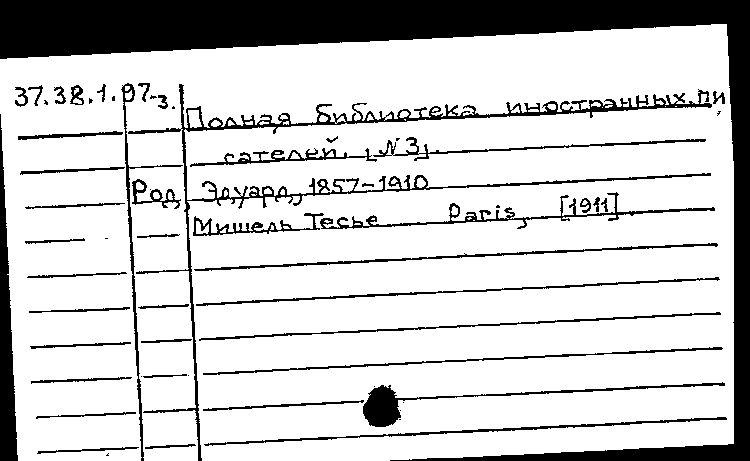 37.38.1.97-3.
Полная библиотека иностранных пи
сателей. [N3].
Род, Эдуард, 1857-1910
Мишель Тесье Paris, [1911].